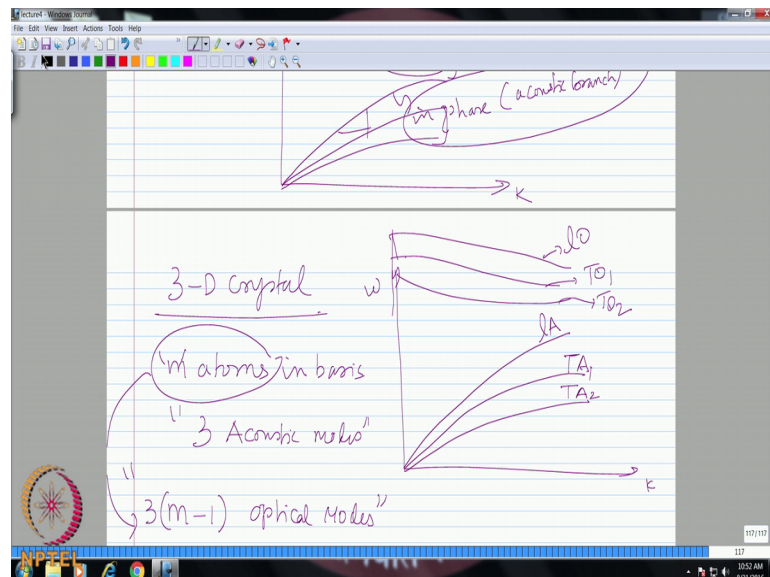 lecture4 - Windows Journal
File Edit View Insert Actions Tools Help
in phase (acoustic branch)
K
3-D Crystal
"m" atoms in basis
"3 Acoustic modes"
"3(m-1) optical modes"
ω
lO
TO1
TO2
lA
TA1
TA2
K
NPTEL
117/117
117
10:52 AM